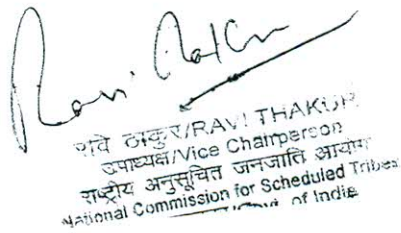 रवि ठाकुर/RAVI THAKUR
उपाध्यक्ष/Vice Chairperson
राष्ट्रीय अनुसूचित जनजाति आयोग
National Commission for Scheduled Tribes
Govt. of India